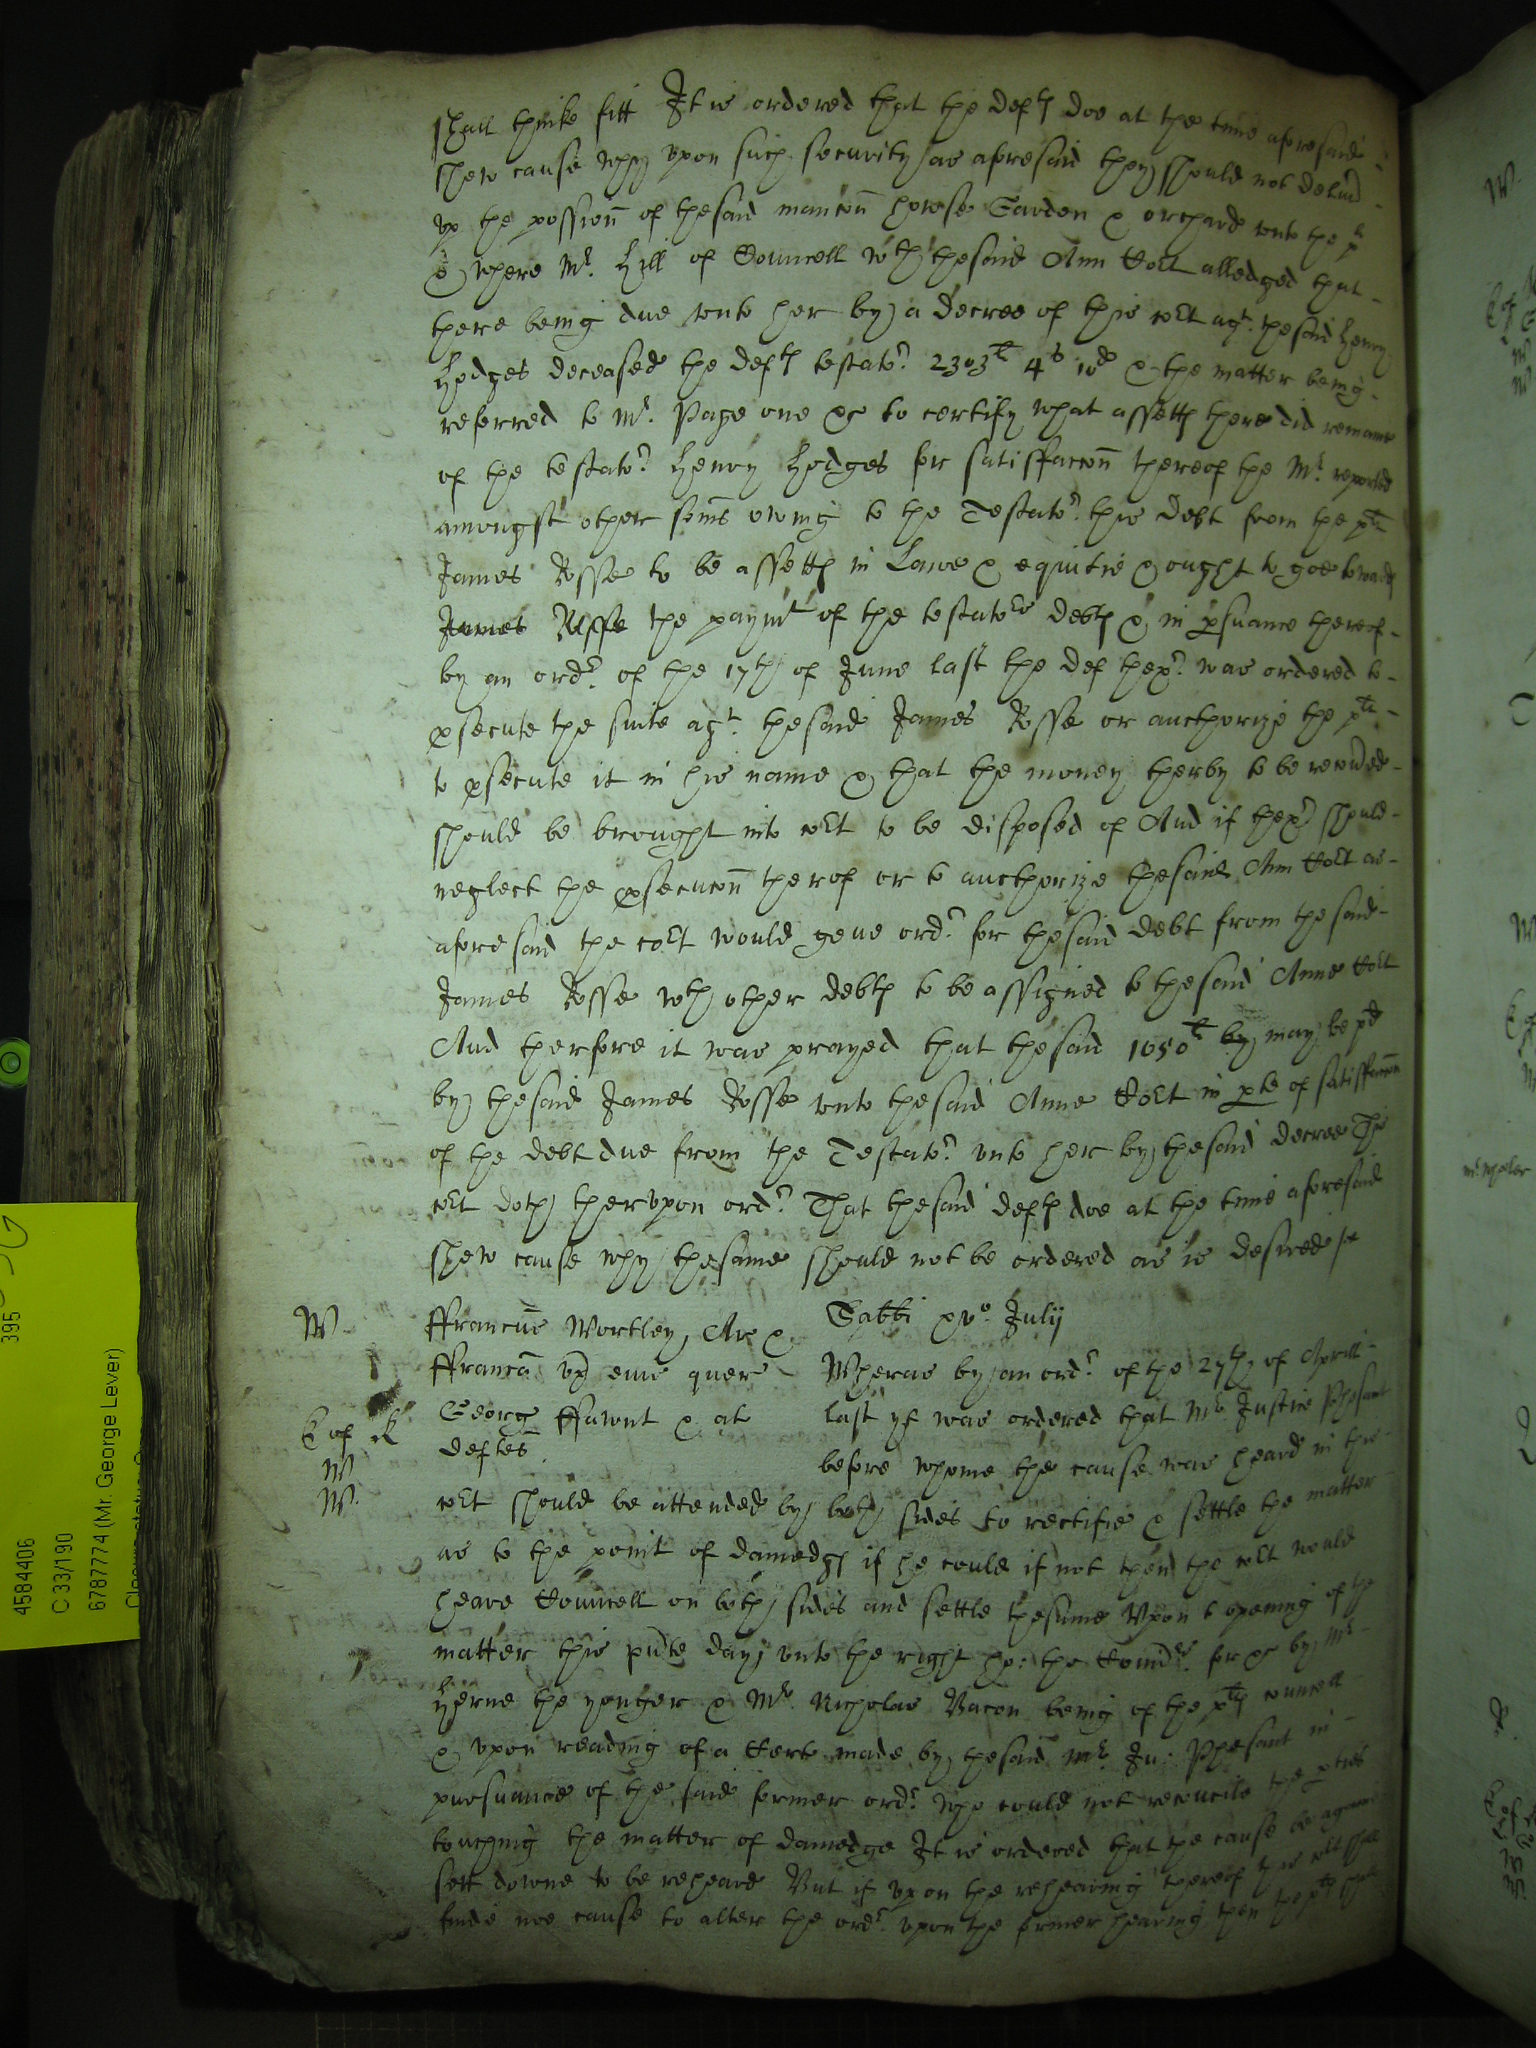 shall thinke fitt It is ordered that the deftes doe at the time aforesaid
shew cause why upon such security as aforesaid they should not deliver
up the possion of thesaid mancon howse Garden & orchard unto the pl
& where Mr. Hill of Councell wth thesaid Ann Colt alledged that
there being due unto her by a decree of this cort agt. thesaid Henry
Hodges deceased the deftes testator 2303li 4s 10d & the matter being
referred to Mr. Page one &c to certify what assetts there did remaine
of the testator Henry Hodges for satisfaccon thereof the Mr. reported
amongst other somes owing to the Testator this debt from the plt
James Rosse to be assetts in Lawe & equitie & ought to goe towards
James Rosse the paymt of the testators debts & in psuance thereof
by an order of the 17th of June last the def thexr. was ordered to
psecute the suite agt. thesaid James Rosse or aucthorize the plt
to psecute it in his name & that the money therby to be recovered
should be brought into cort to be disposed of And if thexr should
neglect the psecucon therof or to aucthorize thesaid Ann Colt as
aforesaid the cort would geve order for thesaid debt from thesaid
James Rosse wth other debts to be assigned to thesaid Anne Colt
And therfore it was prayed that thesaid 1050li by may be pd
by thesaid James Rosse unto thesaid Anne Colt in pte of satisfaccon
of the debt due from the Testator unto her by thesaid decree This
cort doth therupon order That thesaid deftes doe at the time aforesaid
shew cause why thesame should not be ordered as is desired
W Francus Wortley Ar & Sabbi xvo. July
Franca ux eius quer Wheras by an order of the 27th of Aprill
George ffawnt & al Last yt was ordered that Mr Justice Phesant
deftes before whome the cause was heard in this
cort should be attended by both sides to rectifie & settle the matter
as to the point of damedgs if he could if not then the cort would
heare Councell on both sides and settle thesame Upon t opening of the
matter this pnte day unto the right ho: the Comrs. for &c by Mr
Herne the yonger & Mr Nicholas Bacon being of the plts councell
& upon reading of a Certe made by thesaid Mr Ju: Phesant in
pursuance of the said former order who could not reconcile the pties
touching the matter of damedge It is ordered that the cause be againe
sett downe to be reheard But if upon the rehearing thereof this cort shall
finde noe cause to alter the order upon the former hearing then the plts shall
4584406
395
C 33/190
6787774 (Mr. George Lever)